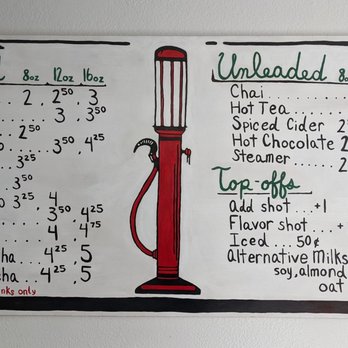 8oz 12oz 16oz
. 2 . 2⁵⁰ . 3
. . . . . 3 . 3⁵⁰
2⁵⁰
. . . 3⁵⁰ . 4²⁵
3²⁵
. . . 3⁵⁰
3²⁵ . 4
. 3⁵⁰ . 4²⁵
. . . . 4 . 4⁷⁵
. . 4²⁵ . 5
. . . 4²⁵ . 5
only
Unleaded
Chai . . . .
Hot Tea . . . .
Spiced Cider 2
Hot Chocolate 2
Steamer . . . . 2
Top-offs
Add shot . . . +1
Flavor shot . . . +
Iced . . . 50¢
Alternative Milks
soy, almond
oat